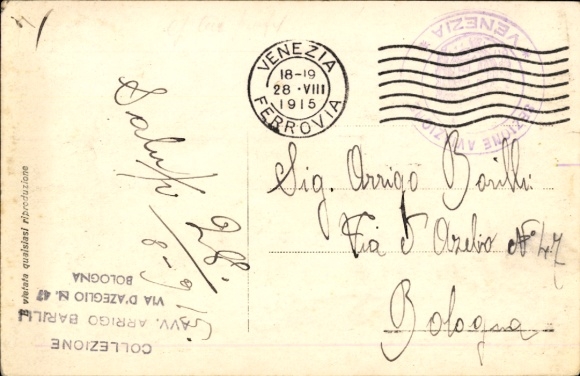 VENEZIA
18-19
28·VIII
1915
FERROVIA
VENEZIA
SEZIONE
Sig. Arrigo Barilli
Via d'Azelio N° 47
Bologna
Saluti
28.
8-915
È vietata qualsiasi riproduzione
COLLEZIONE
AVV. ARRIGO BARILLI
VIA D'AZEGLIO N. 47
BOLOGNA